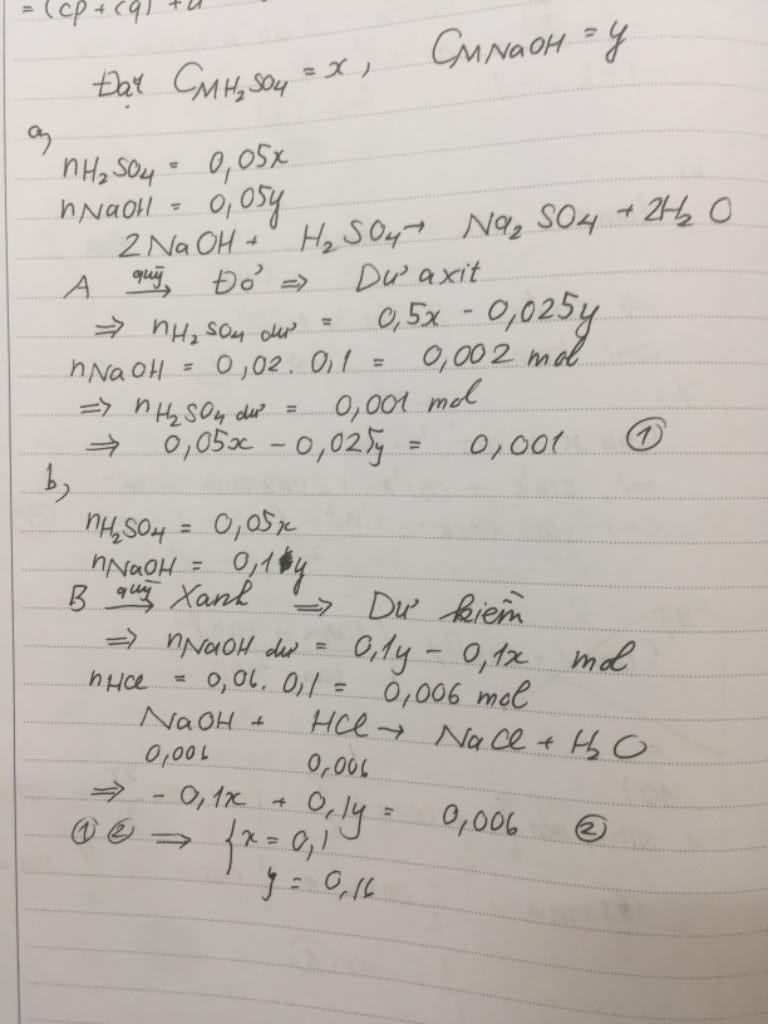 = (cp + cq) + a
Đặt CMH₂SO₄ = x, CMNaOH = y
a,
nH₂SO₄ = 0,05x
nNaOH = 0,05y
2NaOH + H₂SO₄ → Na₂SO₄ + 2H₂O
A quỳ→ Đỏ ⇒ Dư axit
⇒ nH₂SO₄ dư = 0,5x - 0,025y
nNaOH = 0,02 . 0,1 = 0,002 mol
⇒ nH₂SO₄ dư = 0,001 mol
⇒ 0,05x - 0,025y = 0,001 ①
b,
nH₂SO₄ = 0,05x
nNaOH = 0,1y
B quỳ→ Xanh ⇒ Dư kiềm
⇒ nNaOH dư = 0,1y - 0,1x mol
nHCl = 0,06. 0,1 = 0,006 mol
NaOH + HCl → NaCl + H₂O
0,006 0,006
⇒ - 0,1x + 0,1y = 0,006 ②
① ② ⇒ { x = 0,1
y = 0,16